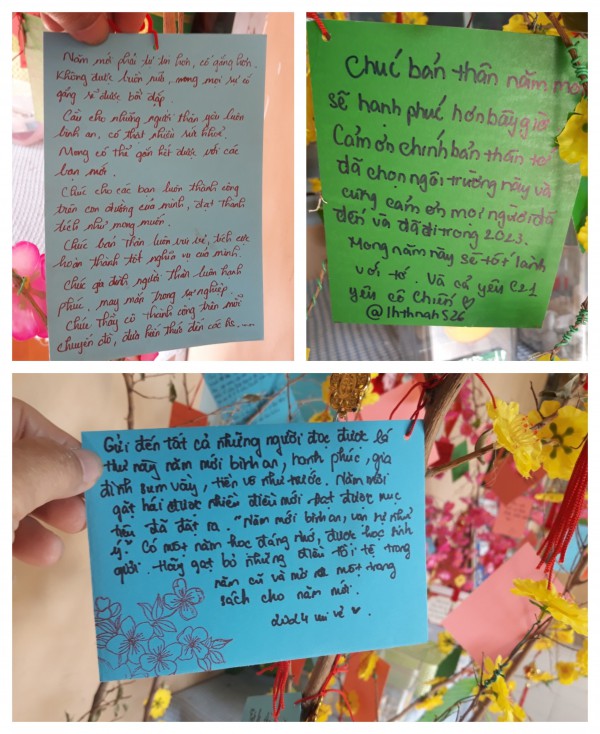 Năm mới phải tự tin hơn, cố gắng hơn.
Không được luôn nữa, mong mọi sự cố
gắng sẽ được bồi đắp.
Cầu cho những người thân yêu luôn
bình an, có thật nhiều sức khoẻ.
Mong có thể gắn kết được với các
bạn mới.
Chúc cho các bạn luôn thành công
trên con đường của mình, đạt thành
tích như mong muốn.
Chúc bản thân luôn vui vẻ, tích cực
hoàn thành tốt nghĩa vụ của mình.
Chúc gia đình người thân luôn hạnh
phúc, may mắn trong sự nghiệp.
Chúc thầy cô thành công trên mỗi
chuyến đò, đưa kiến thức đến các hs.....
Chúc bản thân năm mới
sẽ hạnh phúc hơn bây giờ
Cảm ơn chính bản thân tớ
đã chọn ngôi trường này và
cũng cảm ơn mọi người đã
đến và đã đi trong 2023.
Mong năm này sẽ tốt lành
với tớ. Và cả yêu C21
yêu cô Chiến ♡
@lhthnahS26
Gửi đến tất cả những người đọc được lá
thư này năm mới bình an, hạnh phúc, gia
đình sum vầy, tiền vô như nước. Năm mới
gặt hái được nhiều điều mới đạt được mục
tiêu đã đặt ra. "Năm mới bình an, vạn sự như
ý." Có một năm học đáng nhớ, được học sinh
giỏi. Hãy gạt bỏ những điều tồi tệ trong
năm cũ và mở ra một trang
sách cho năm mới.
2024 vui vẻ ♥.